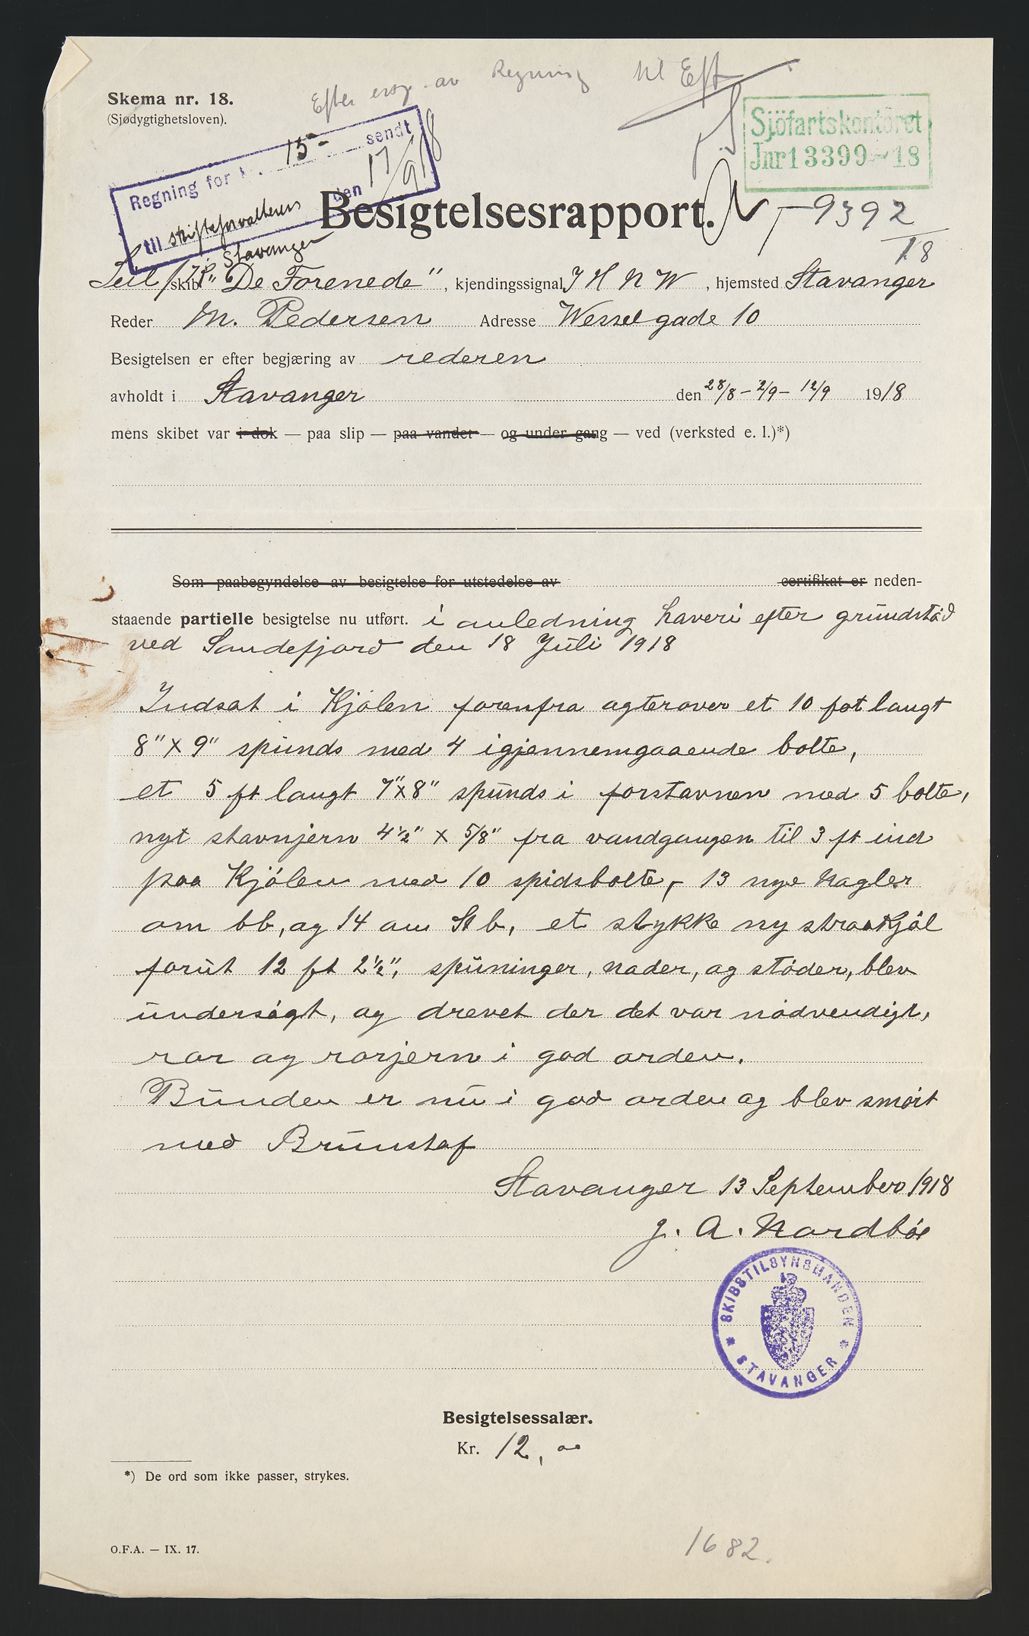 Skema nr. 18.
(Sjødygtighetsloven).
Efter av Regning til Eft
Regning for k. 15- sendt
til skifteforvalteren den 17/9 18
Stavanger
Sjöfartskontoret
Jnr 13399-18
Besigtelsesrapport.
9392
18
Seil/skib "De Forenede", kjendingssignal J H N W, hjemsted Stavanger
Reder M. Pedersen Adresse Wesselgade 10
Besigtelsen er efter begjæring av rederen
avholdt i Stavanger den 28/8 - 2/9 - 12/9 1918
mens skibet var i dok — paa slip — paa vandet — og under gang — ved (verksted e. l.)*)
Som paabegyndelse av besigtelse for utstedelse av certifikat er neden-
staaende partielle besigtelse nu utført. i anledning haveri efter grundstød
ved Sandefjord den 18 Juli 1918
Indsat i Kjølen forenfra agterover et 10 fot langt
8" x 9" spunds med 4 igjennemgaaende bolte,
et 5 ft langt 7" x 8" spunds i forstavnen med 5 bolte,
nyt stavnjern 4½" x 5/8" fra vandgangen til 3 ft ind
paa Kjølen med 10 spidsbolte, 13 nye Nagler
om bb, og 14 om St b, et stykke ny straakjøl
forut 12 ft 2½", spuninger, nader, og støder, blev
undersøgt, og drevet der det var nødvendigt,
ror og rorjern i god orden.
Bunden er nu i god orden og blev smørt
med Brunstof
Stavanger 13 September 1918
J. A. Nordbøe
SKIBSTILSYNSMANDEN
* STAVANGER *
Besigtelsessalær.
Kr. 12,00
*) De ord som ikke passer, strykes.
O.F.A. — IX. 17.
1682.